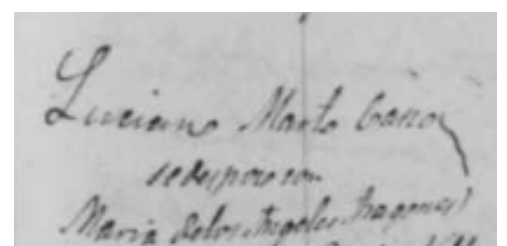 Luciano Marto Cano
se desposo con
Maria de los Angeles